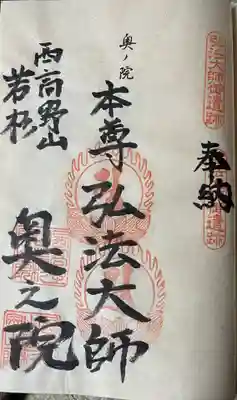 弘法大師御遺跡
奉納
奥ノ院
本尊弘法大師
西高野山
若杉
奥之院